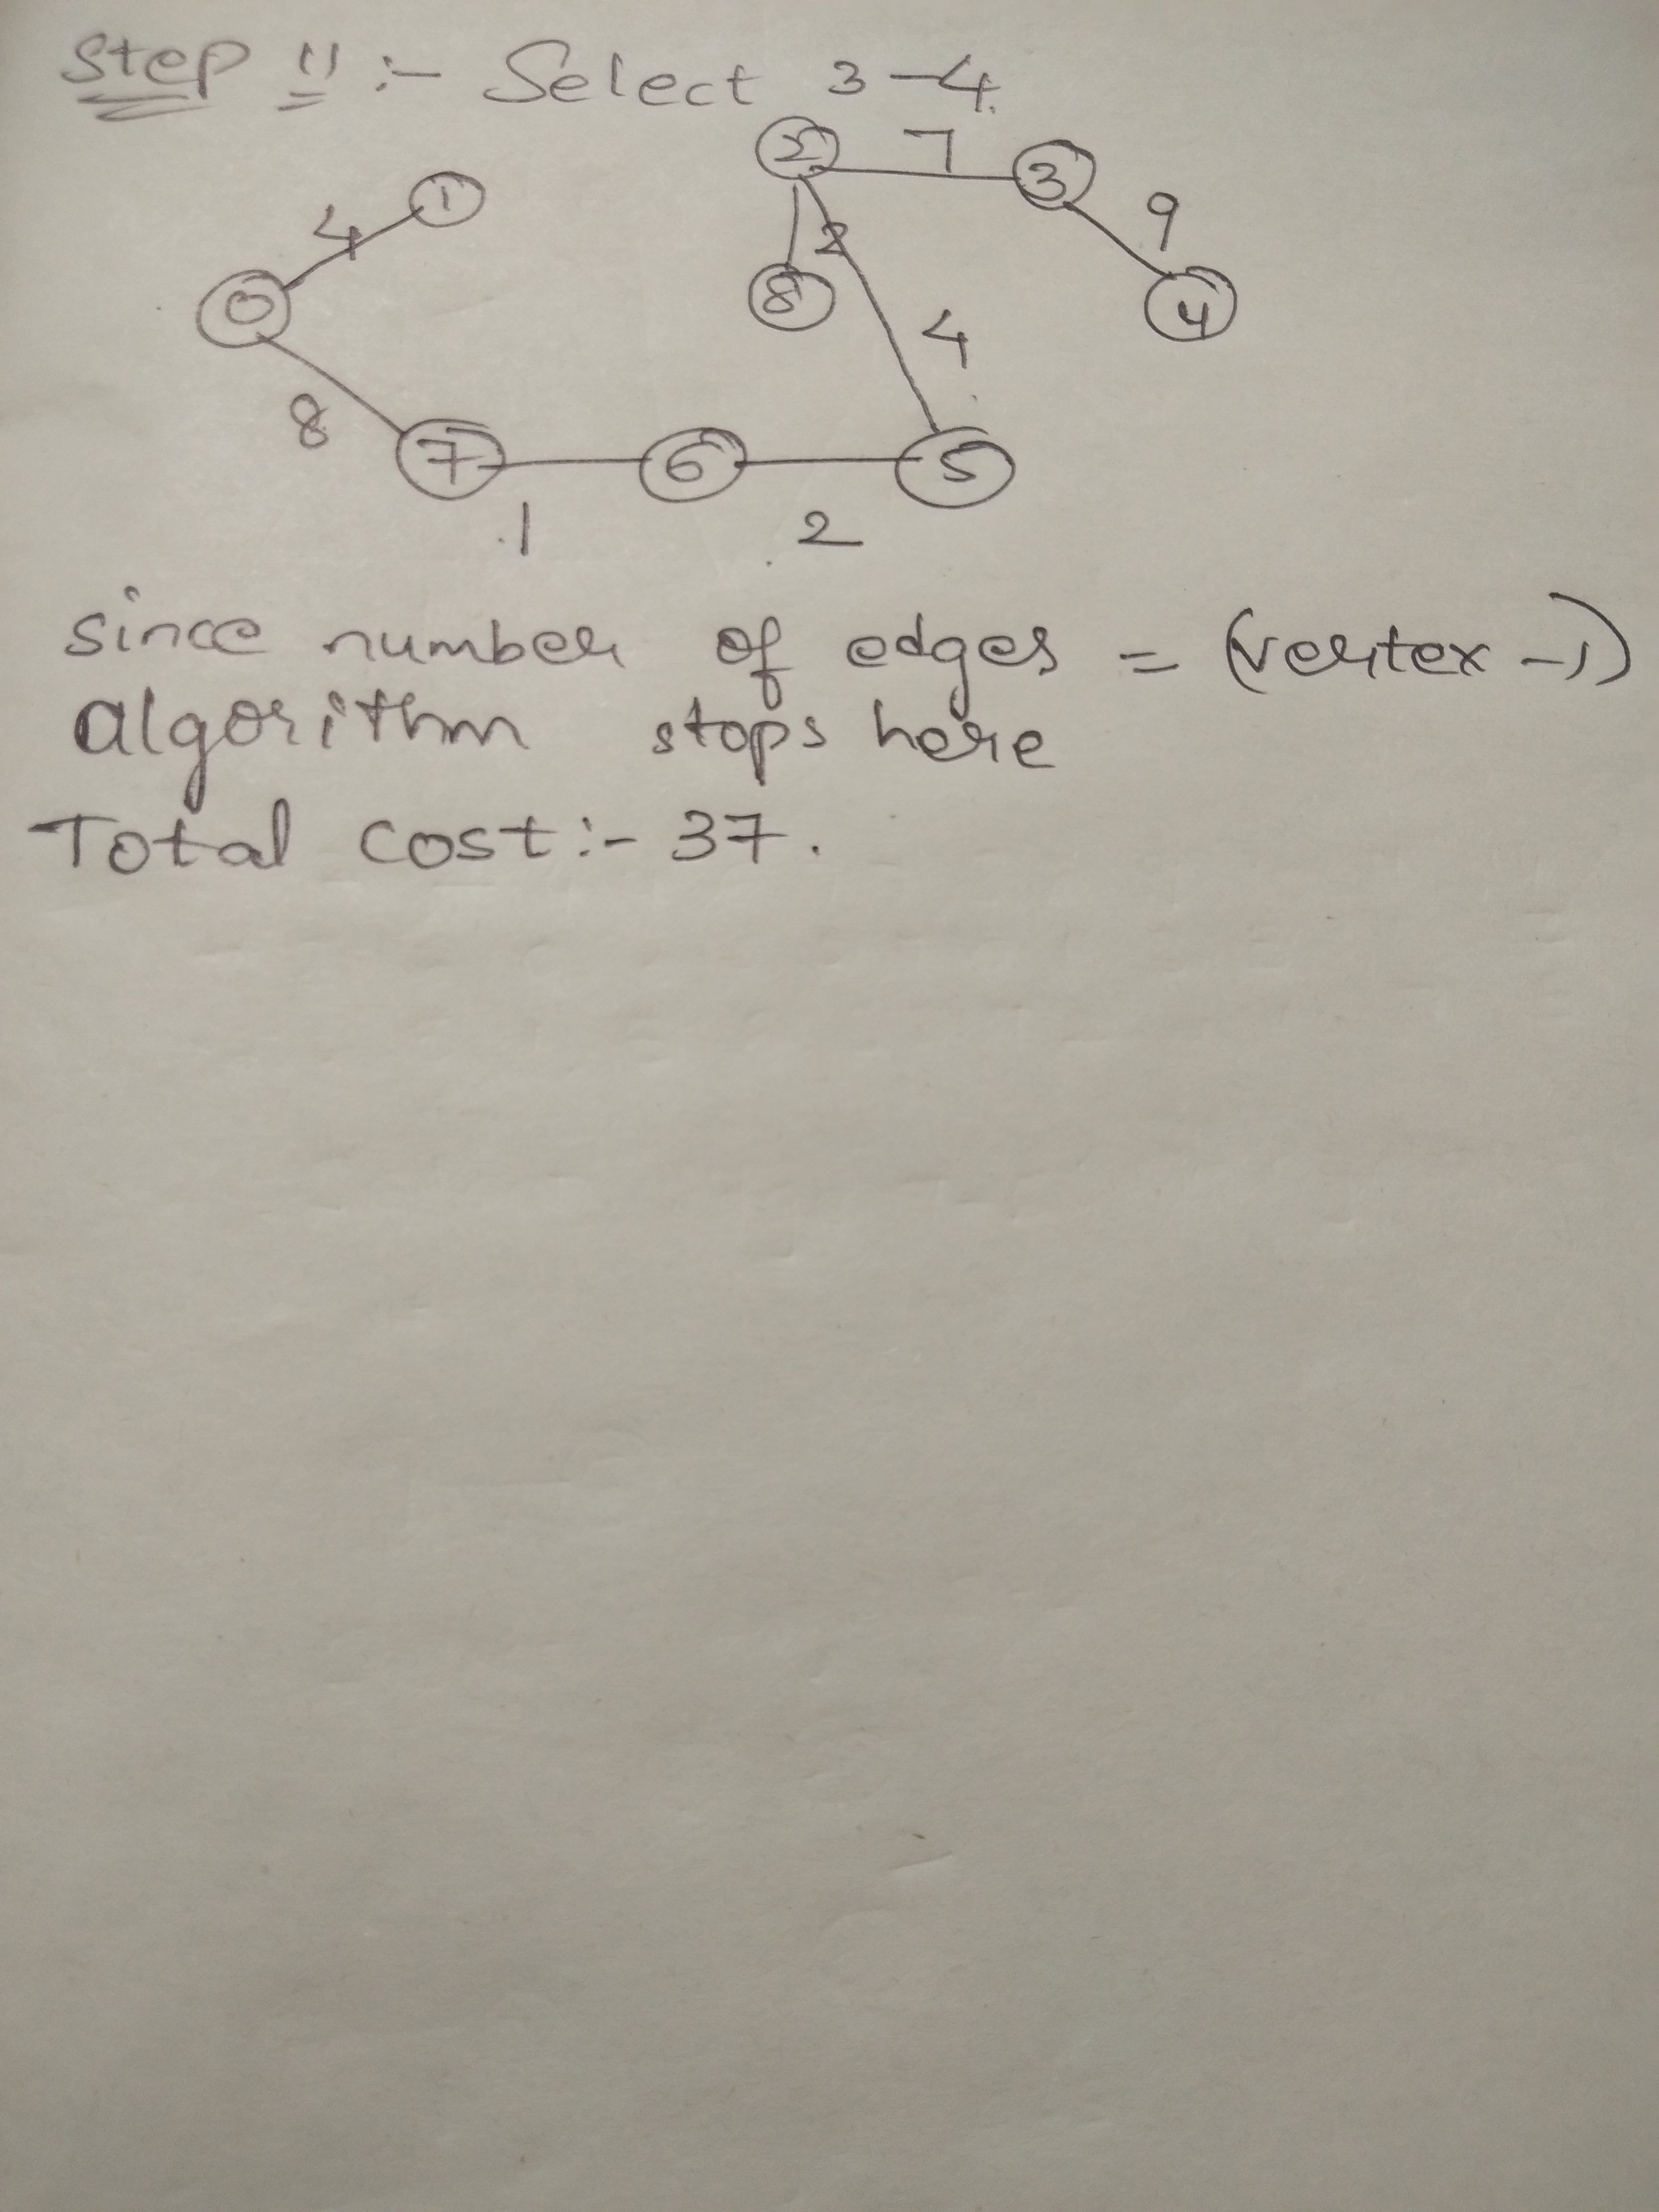 Step 11 :- Select 3-4.
2 7 3
1 9
4 2
0 8 4
4
8
7 6 5
1 2
since number of edges = (vertex -1)
algorithm stops here
Total cost :- 37.